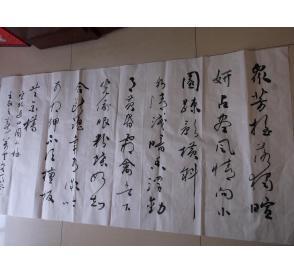 眾芳摇落獨暄
妍占盡風情向小
園疎影横斜
水清浅暗香浮動
月黄昏霜禽欲下
先偷眼粉蝶如知
合断魂幸有微吟
可相狎不须檀板
共金樽
山園小梅